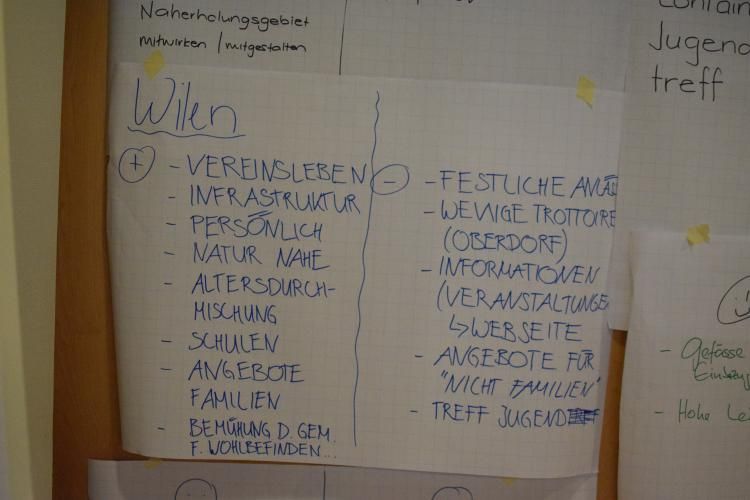 Naherholungsgebiet
mitwirken / mitgestalten
Jugend
treff
Wilen
+
- VEREINSLEBEN
- INFRASTRUKTUR
- PERSÖNLICH
- NATUR NAHE
- ALTERSDURCH-
MISCHUNG
- SCHULEN
- ANGEBOTE
FAMILIEN
- BEMÜHUNG D. GEM.
F. WOHLBEFINDEN...
-
- FESTLICHE ANLÄS
- WENIGE TROTTOIRE
(OBERDORF)
- INFORMATIONEN
(VERANSTALTUNGEN
↳ WEBSEITE
- ANGEBOTE FÜR
"NICHT FAMILIEN"
- TREFF JUGEND
- Gefässe
- Hohe